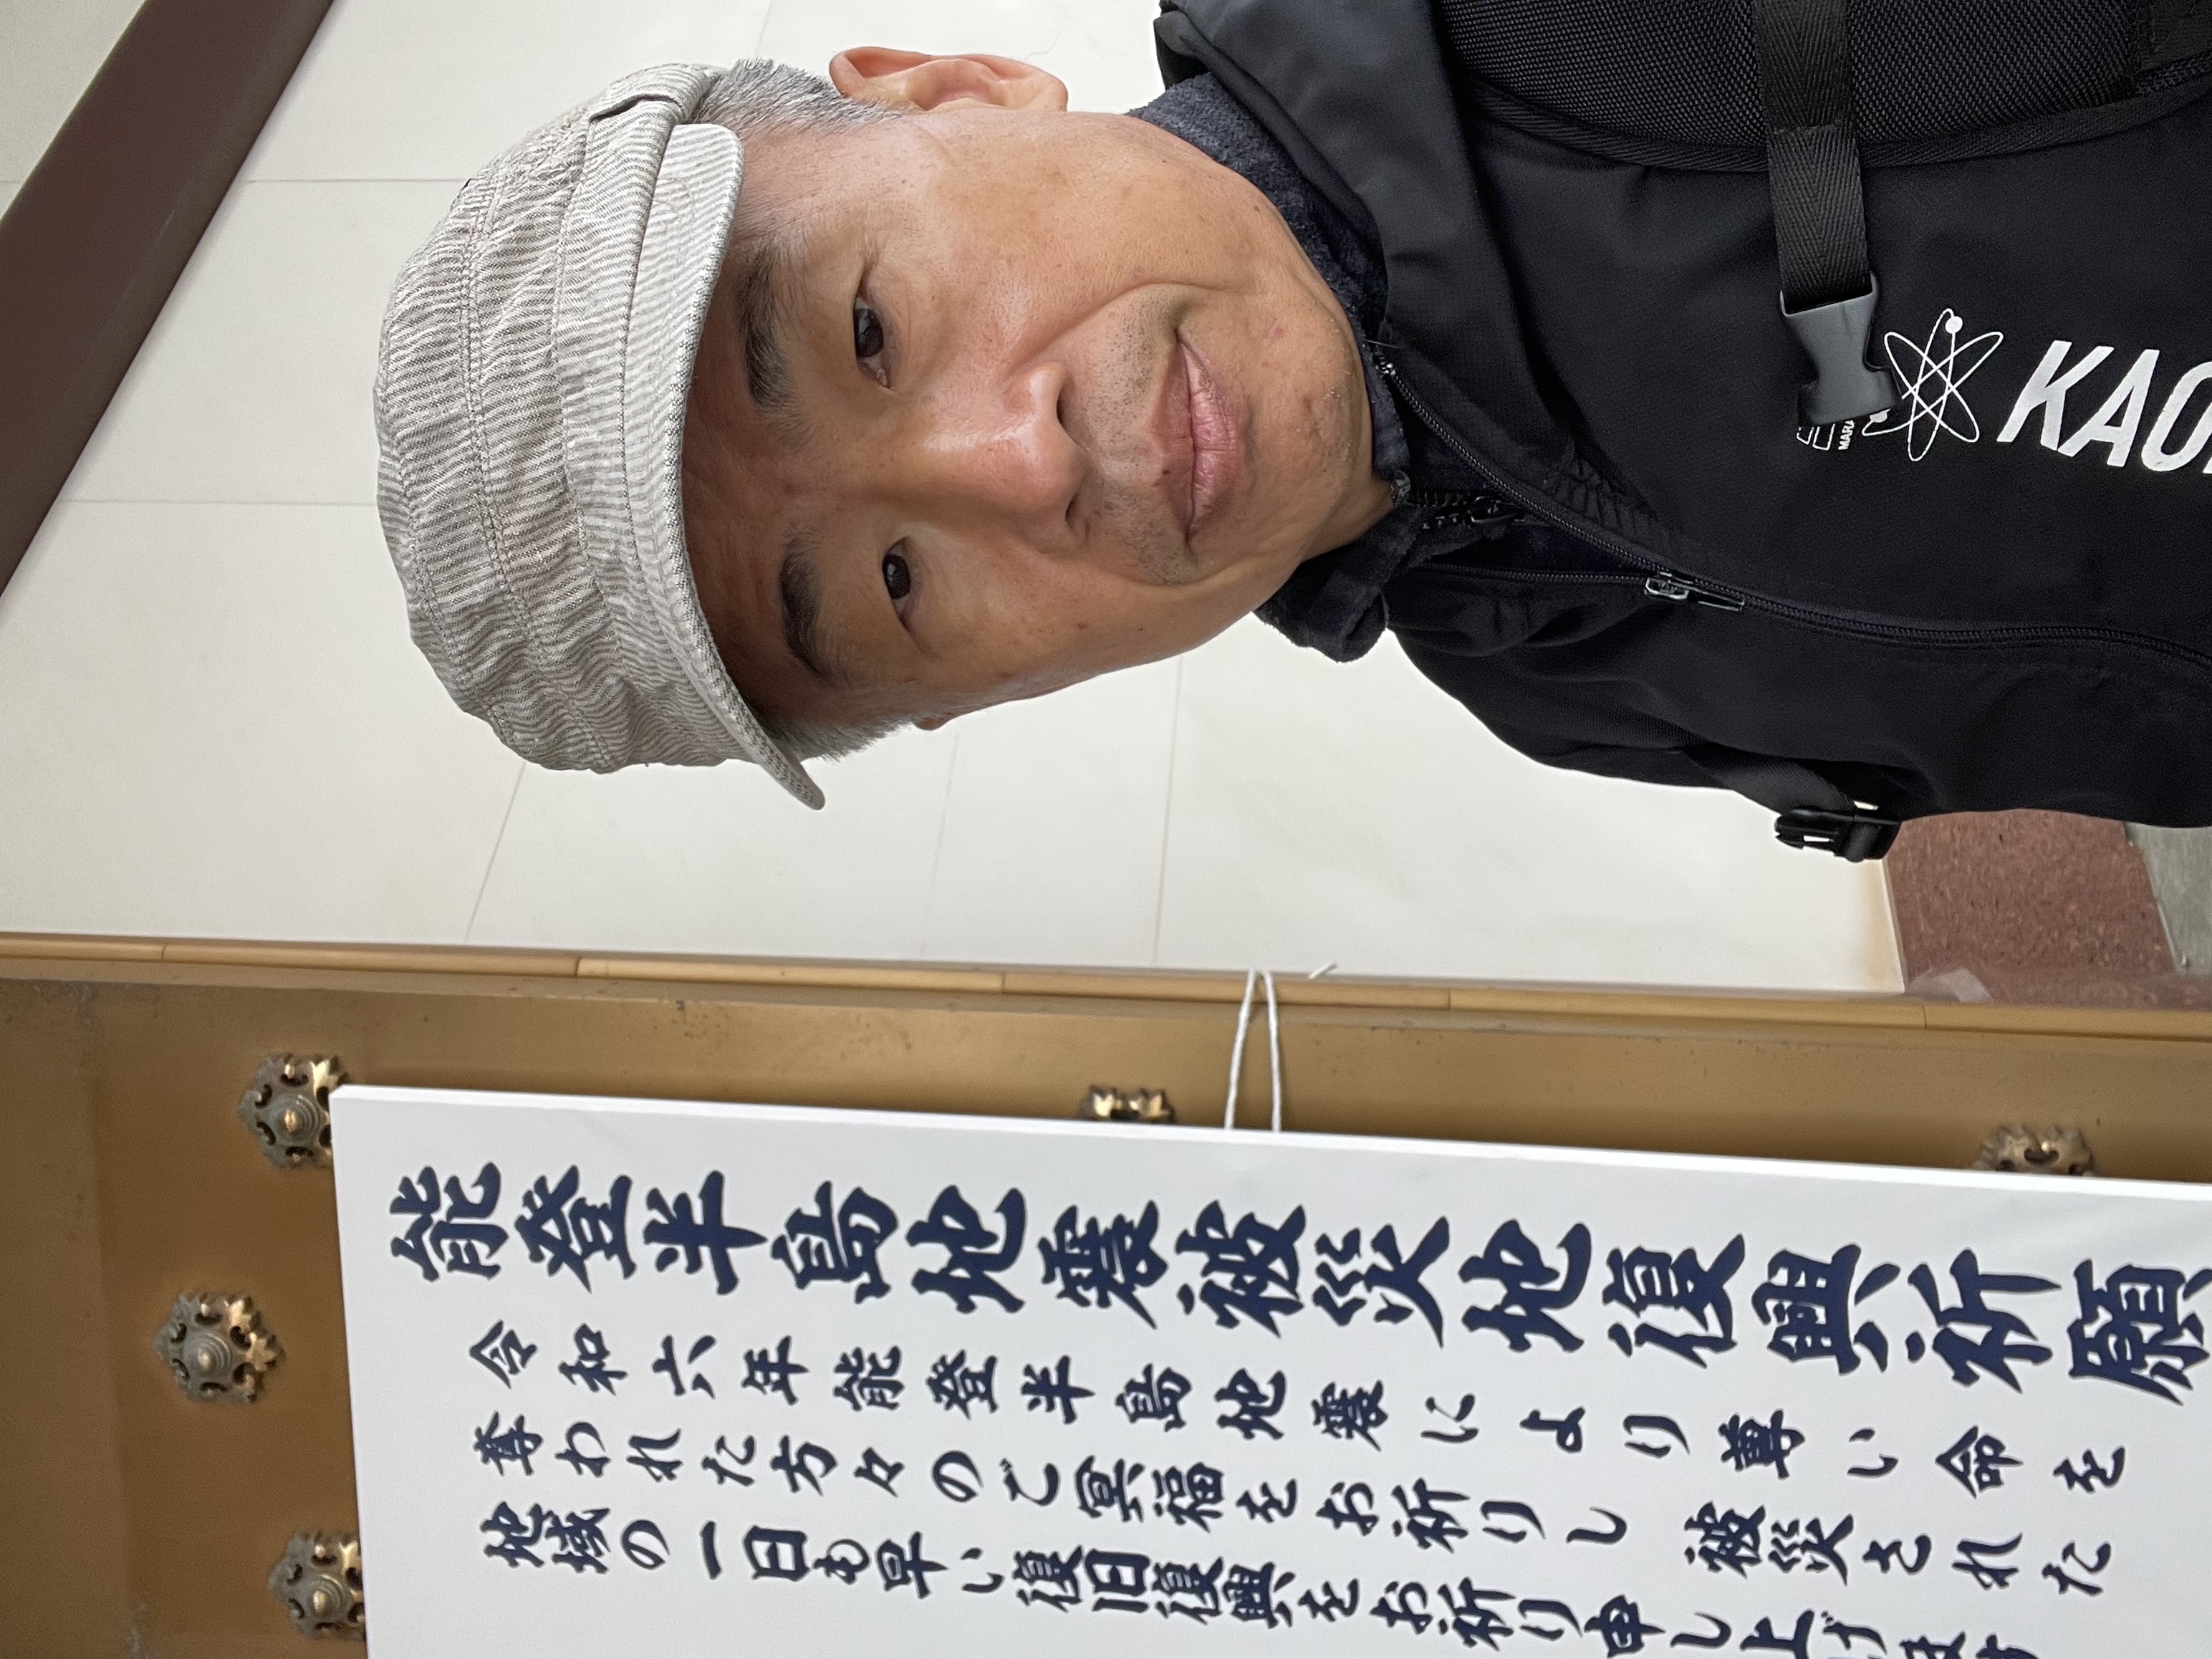 能登半島地震被災地復興祈願
令和六年能登半島地震により尊い命を
奪われた方々のご冥福をお祈りし 被災された
地域の一日も早い復旧復興をお祈り申し上げます